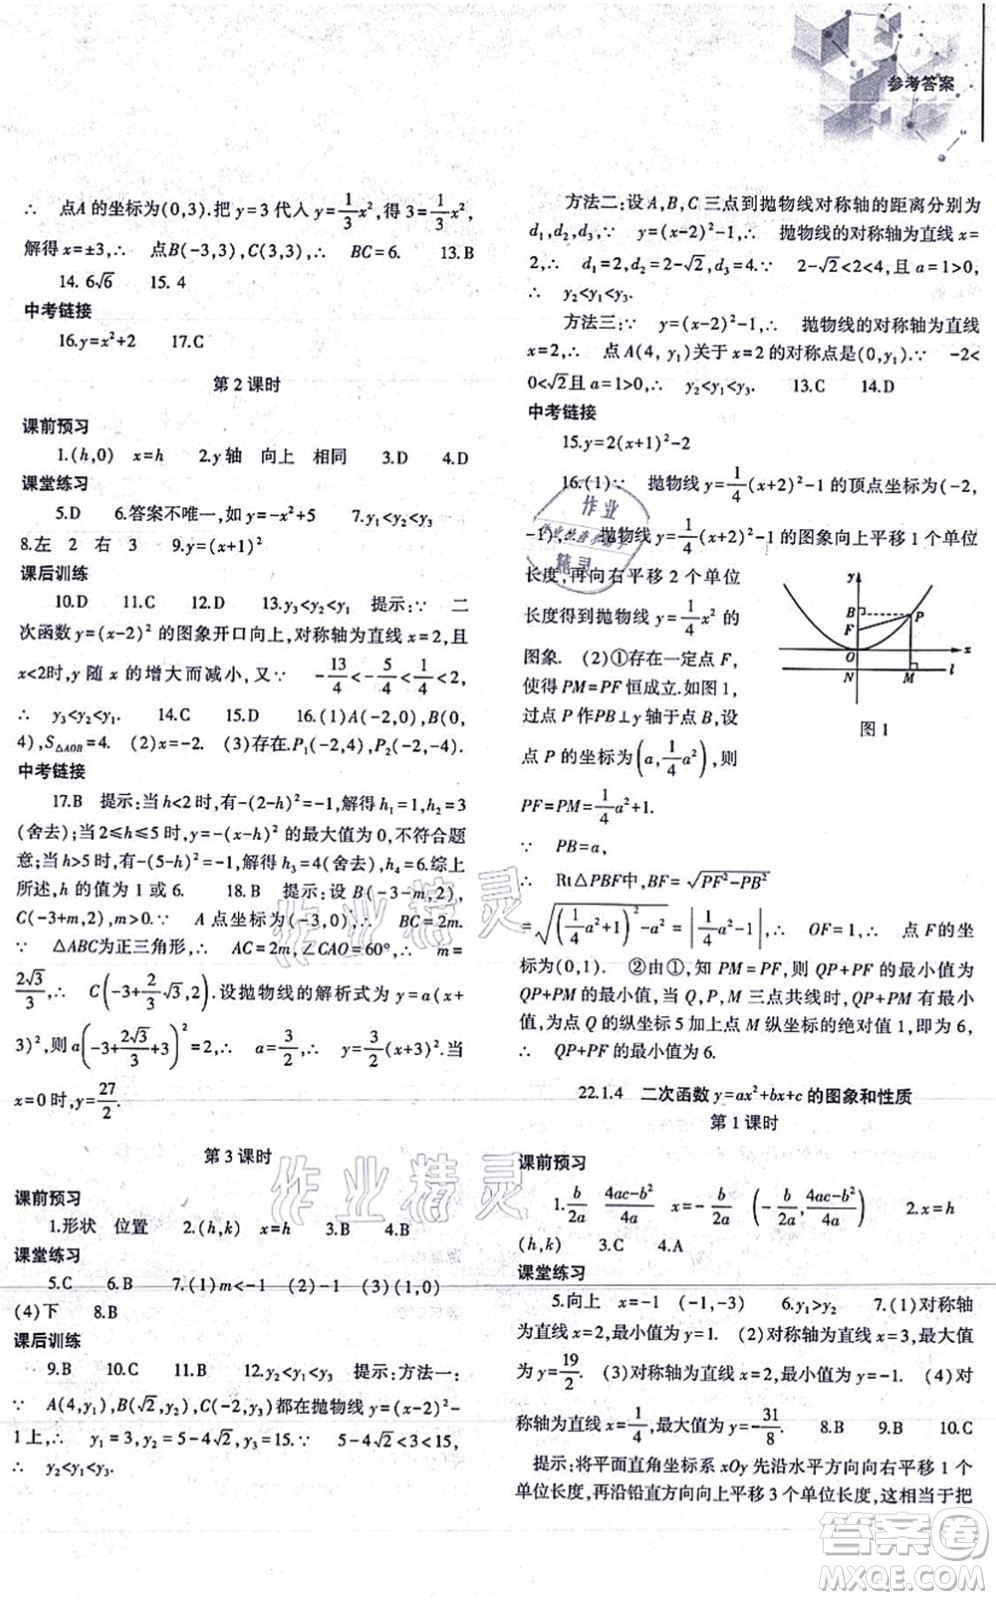 参考答案
∴ 点A的坐标为(0,3).把y=3代入y=1/3x²,得3=1/3x²,
解得x=±3,∴ 点B(-3,3),C(3,3),∴ BC=6. 13.B
14. 6√6 15. 4
中考链接
16.y=x²+2 17.C
第2课时
课前预习
1.(h,0) x=h 2.y轴 向上 相同 3.D 4.D
课堂练习
5.D 6.答案不唯一,如y=-x²+5 7.y₁<y₂<y₃
8.左 2 右 3 9.y=(x+1)²
课后训练
10.D 11.C 12.D 13.y₃<y₂<y₁ 提示:∵ 二
次函数y=(x-2)²的图象开口向上,对称轴为直线x=2,且
x<2时,y随x的增大而减小,又∵ -13/4<-5/4<1/4<2,
∴ y₃<y₂<y₁. 14.C 15.D 16.(1)A(-2,0),B(0,
4),S△AOB=4. (2)x=-2. (3)存在.P₁(-2,4),P₂(-2,-4).
中考链接
17.B 提示:当h<2时,有-(2-h)²=-1,解得h₁=1,h₂=3
(舍去);当2≤h≤5时,y=-(x-h)²的最大值为0,不符合题
意;当h>5时,有-(5-h)²=-1,解得h₃=4(舍去),h₄=6.综上
所述,h的值为1或6. 18.B 提示:设B(-3-m,2),
C(-3+m,2),m>0.∵ A点坐标为(-3,0),∴ BC=2m.
∵ △ABC为正三角形,∴ AC=2m,∠CAO=60°,∴ m=
2√3/3,∴ C(-3+2/3√3,2).设抛物线的解析式为y=a(x+
3)²,则a(-3+2√3/3+3)²=2,∴ a=3/2,∴ y=3/2(x+3)².当
x=0时,y=27/2.
第3课时
课前预习
1.形状 位置 2.(h,k) x=h 3.B 4.B
课堂练习
5.C 6.B 7.(1)m<-1 (2)-1 (3)(1,0)
(4)下 8.B
课后训练
9.B 10.C 11.B 12.y₂<y₁<y₃ 提示:方法一:
∵ A(4,y₁),B(√2,y₂),C(-2,y₃)都在抛物线y=(x-2)²-
1上,∴ y₁=3,y₂=5-4√2,y₃=15.∵ 5-4√2<3<15,
∴ y₂<y₁<y₃.
方法二:设A,B,C三点到抛物线对称轴的距离分别为
d₁,d₂,d₃.∵ y=(x-2)²-1,∴ 抛物线的对称轴为直线x=
2,∴ d₁=2,d₂=2-√2,d₃=4.∵ 2-√2<2<4,且a=1>0,
∴ y₂<y₁<y₃.
方法三:∵ y=(x-2)²-1,∴ 抛物线的对称轴为直线
x=2,∴ 点A(4, y₁)关于x=2的对称点是(0,y₁).∵ -2<
0<√2且a=1>0,∴ y₂<y₁<y₃. 13.C 14.D
中考链接
15.y=2(x+1)²-2
16.(1)∵ 抛物线y=1/4(x+2)²-1的顶点坐标为(-2,
-1),∴ 抛物线y=1/4(x+2)²-1的图象向上平移1个单位
长度,再向右平移2个单位
长度得到抛物线y=1/4x²的
图象. (2)①存在一定点F,
使得PM=PF恒成立.如图1,
过点P作PB⊥y轴于点B,设
点P的坐标为(a,1/4a²),则
PF=PM=1/4a²+1.
y
B
P
F
O
x
N
M
l
图1
∵ PB=a,
∴ Rt△PBF中,BF=√(PF²-PB²)
=√((1/4a²+1)²-a²)=|1/4a²-1|,∴ OF=1,∴ 点F的坐
标为(0,1). ②由①,知PM=PF,则QP+PF的最小值为
QP+PM的最小值,当Q,P,M三点共线时,QP+PM有最小
值,为点Q的纵坐标5加上点M纵坐标的绝对值1,即为6,
∴ QP+PF的最小值为6.
22.1.4 二次函数y=ax²+bx+c的图象和性质
第1课时
课前预习
1.b/2a (4ac-b²)/4a x=-b/2a (-b/2a,(4ac-b²)/4a) 2.x=h
(h,k) 3.C 4.A
课堂练习
5.向上 x=-1 (-1,-3) 6.y₁>y₂ 7.(1)对称轴
为直线x=2,最小值为y=1. (2)对称轴为直线x=3,最大值
为y=19/2. (3)对称轴为直线x=2,最小值为y=-1. (4)对
称轴为直线x=1/4,最大值为y=-31/8. 8.B 9.B 10.C
提示:将平面直角坐标系xOy先沿水平方向向右平移1个
单位长度,再沿铅直方向向上平移3个单位长度,这相当于把
作业
精灵
作业精灵
作业精灵
答案卷
MXQE.COM